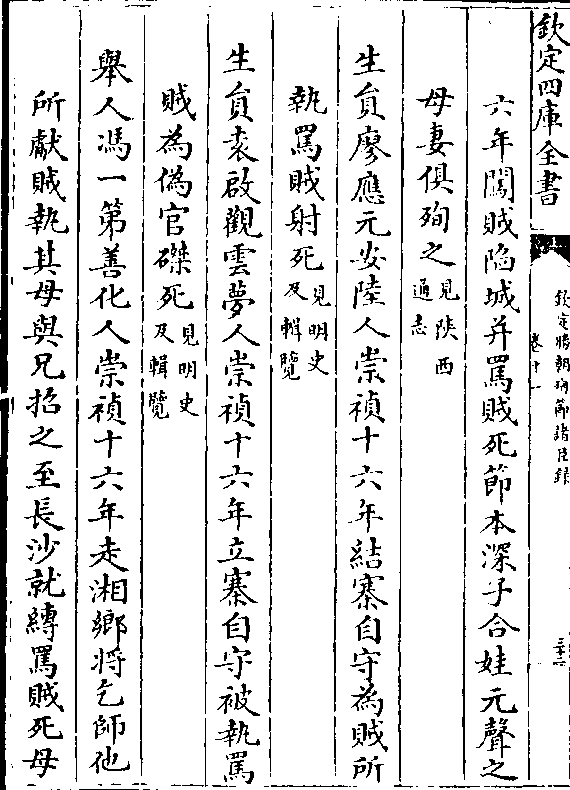 欽定四庫全書
欽定勝朝殉節諸臣錄
卷十一
三十二
六年闖賊陷城并罵賊死節本深子合娃元聲之
母妻俱殉之見陝西通志
生員廖應元安陸人崇禎十六年結寨自守為賊所
執罵賊射死見明史及輯覽
生員袁啟觀雲夢人崇禎十六年立寨自守被執罵
賊為偽官磔死見明史及輯覽
舉人馮一第善化人崇禎十六年走湘鄉將乞師他
所獻賊執其母與兄招之至長沙就縳罵賊死母